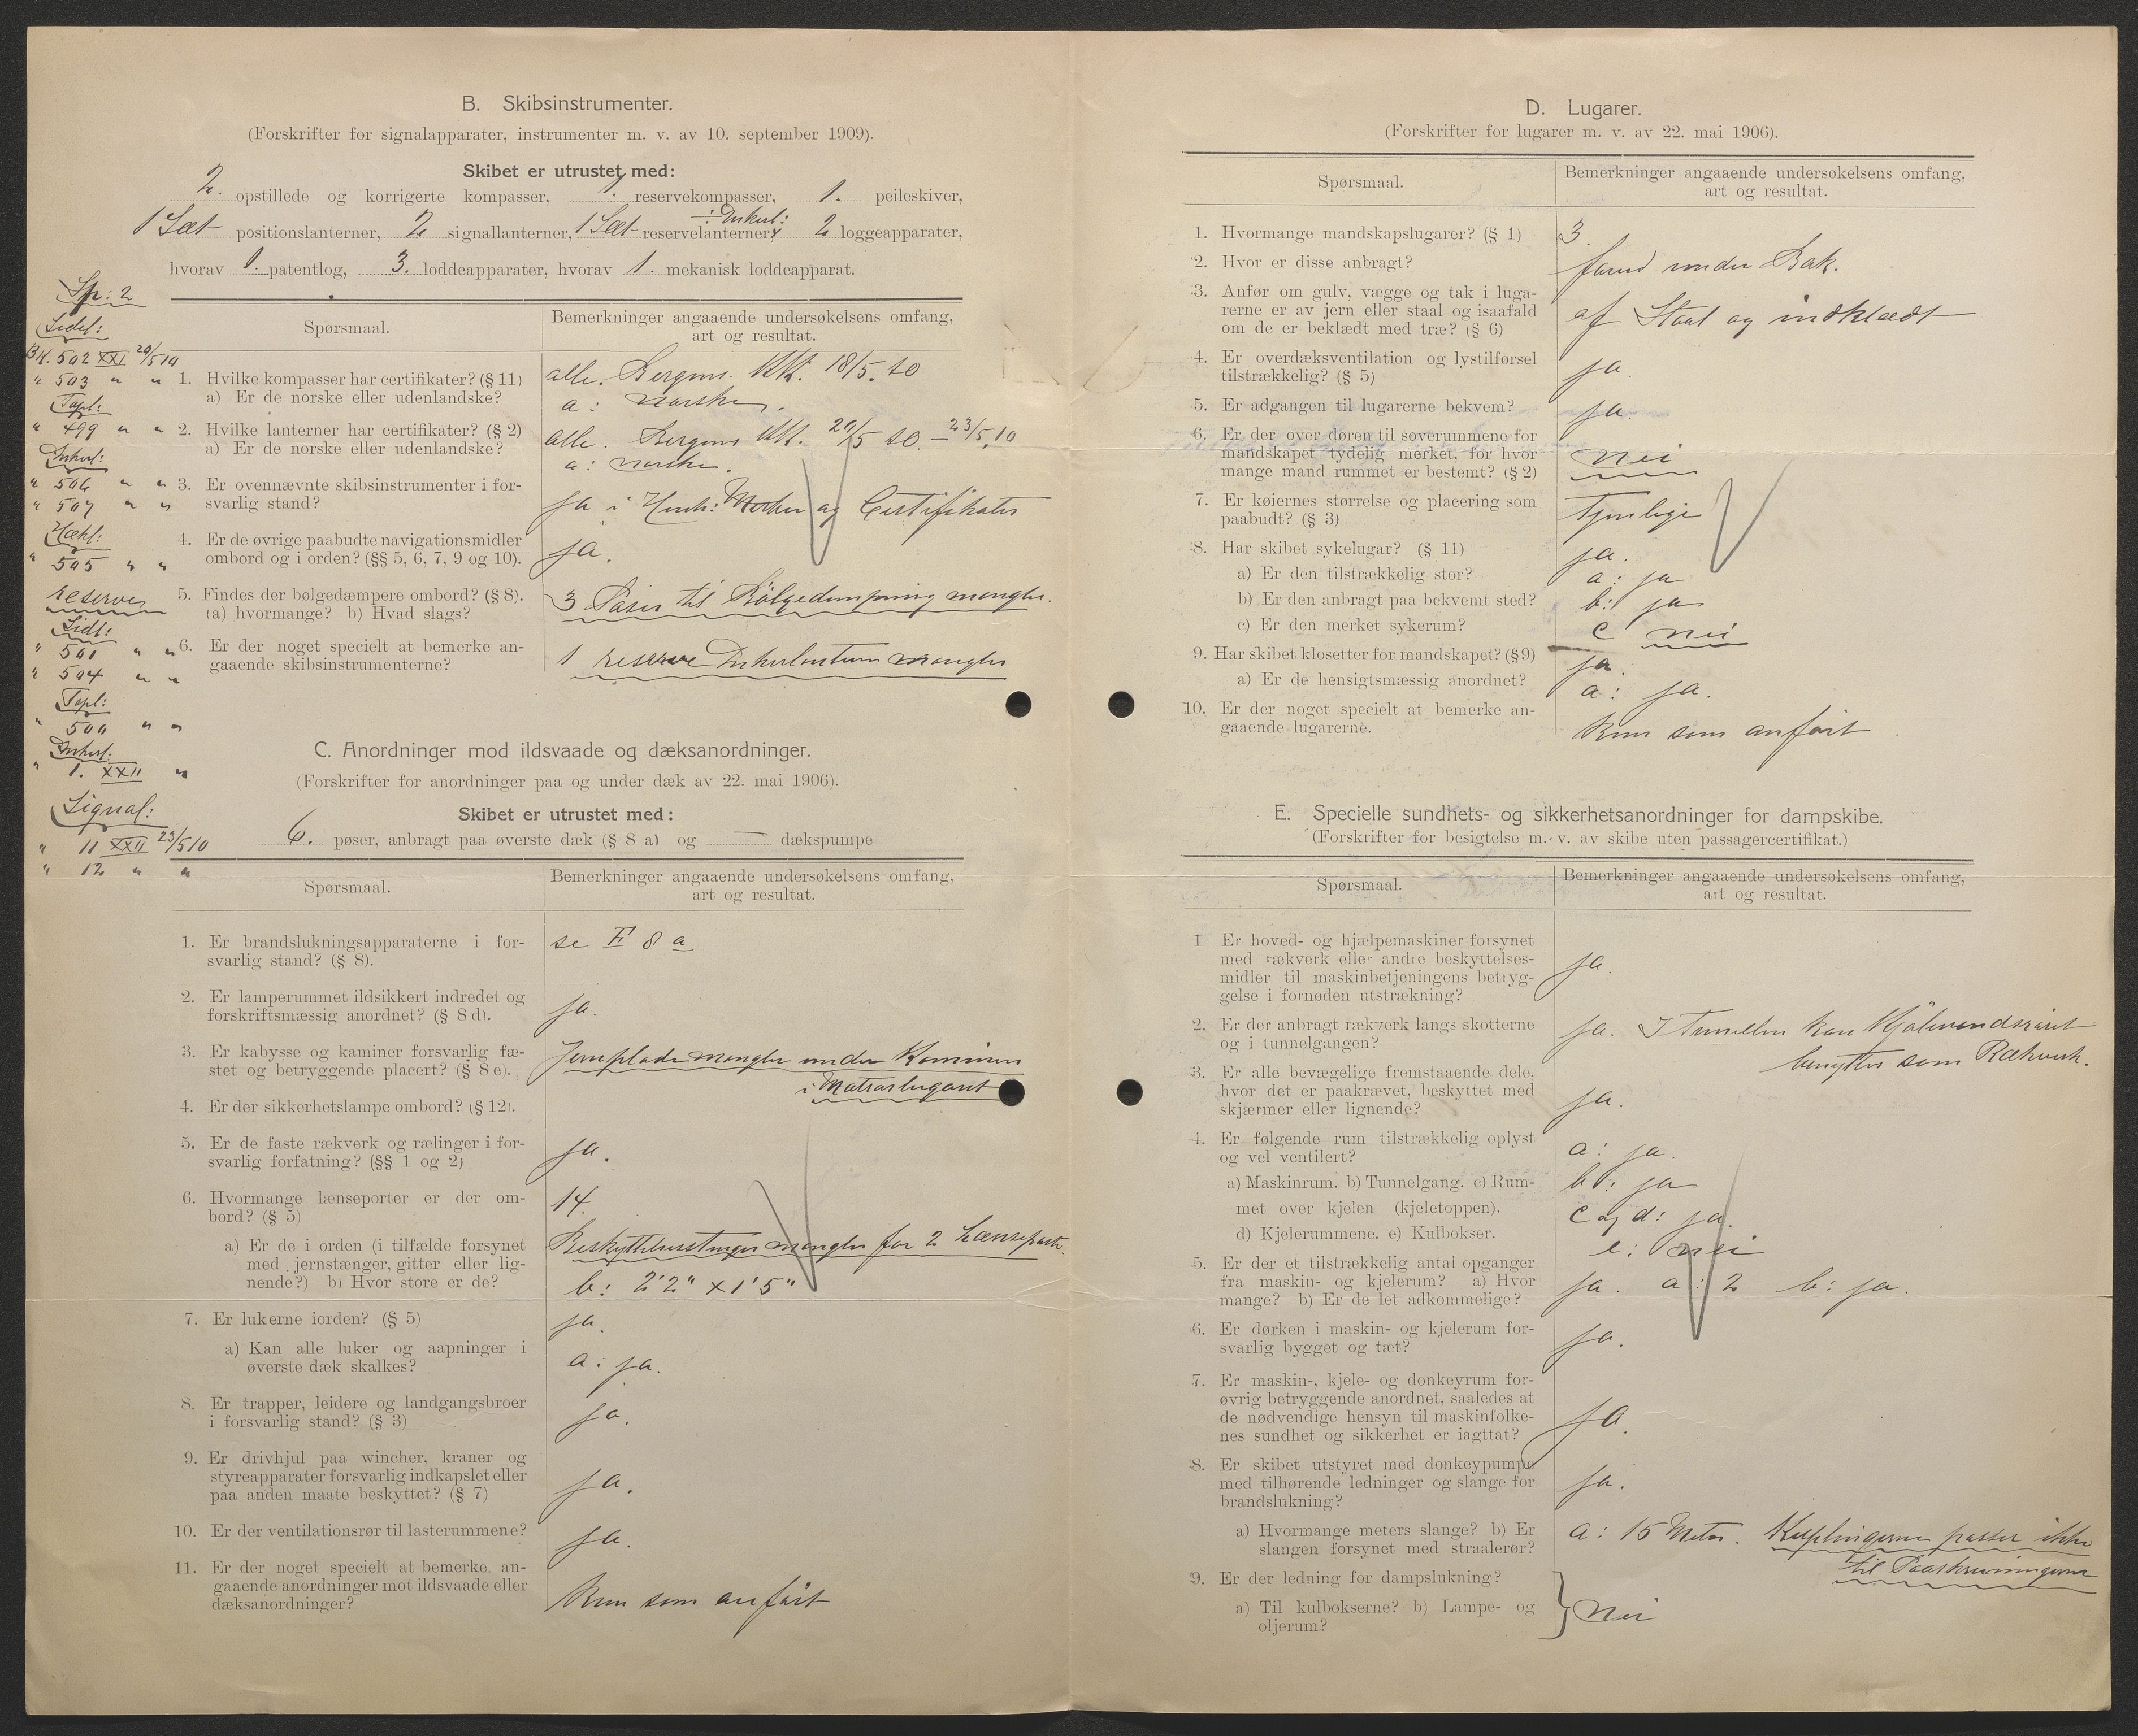 B. Skibsinstrumenter.
(Forskrifter for signalapparater, instrumenter m. v. av 10. september 1909).
Skibet er utrustet med:
2. opstillede og korrigerte kompasser, 1. reservekompasser, 1. peileskiver,
1 Sæt positionslanterner, 2 signallanterner, 1 Sæt reservelanterner, 2 loggeapparater,
hvorav 1. patentlog, 3. loddeapparater, hvorav 1. mekanisk loddeapparat.
Sp: 2
Sidel:
BK. 502 XXI 20/5 10
" 503 " "
Topl:
" 499 " "
Ankerl:
" 506 " "
" 507 " "
Hækl:
" 505 " "
reserve
Sidl:
" 501 " "
" 504 " "
Topl:
" 500 " "
Ankerl:
" 1. XXII "
Signal:
" 11 XXII 23/5 10
" 12 " "
Spørsmaal.
Bemerkninger angaaende undersøkelsens omfang,
art og resultat.
1. Hvilke kompasser har certifikater? (§ 11)
a) Er de norske eller udenlandske?
alle. Bergens KK. 18/5. 10
a: norske.
2. Hvilke lanterner har certifikater? (§ 2)
a) Er de norske eller udenlandske?
alle. Bergens KK. 20/5 10 – 23/5. 10
a: norske.
3. Er ovennævnte skibsinstrumenter i for-
svarlig stand?
ja i Henh: og Certifikater
4. Er de øvrige paabudte navigationsmidler
ombord og i orden? (§§ 5, 6, 7, 9 og 10).
ja.
5. Findes der bølgedæmpere ombord? (§ 8).
(a) hvormange? b) Hvad slags?
3 Poser til Bölgedæmpning mangler.
6. Er der noget specielt at bemerke an-
gaaende skibsinstrumenterne?
1 reserve Ankerlanterne mangler
C. Anordninger mod ildsvaade og dæksanordninger.
(Forskrifter for anordninger paa og under dæk av 22. mai 1906).
Skibet er utrustet med:
6. pøser, anbragt paa øverste dæk (§ 8 a) og — dækspumpe
Spørsmaal.
Bemerkninger angaaende undersøkelsens omfang,
art og resultat.
1. Er brandslukningsapparaterne i for-
svarlig stand? (§ 8).
se E 8 a
2. Er lamperummet ildsikkert indredet og
forskriftsmæssig anordnet? (§ 8 d).
ja.
3. Er kabysse og kaminer forsvarlig fæ-
stet og betryggende placert? (§ 8 e).
Jernplade mangler under Kaminen
i Matroslugaret
4. Er der sikkerhetslampe ombord? (§ 12).
5. Er de faste rækverk og rælinger i for-
svarlig forfatning? (§§ 1 og 2)
ja.
6. Hvormange lænseporter er der om-
bord? (§ 5)
14.
a) Er de i orden (i tilfælde forsynet
med jernstænger, gitter eller lig-
nende?) b) Hvor store er de?
Beskyttelsesstænger mangler for 2 Lænseporte.
b: 2'2" × 1'5"
7. Er lukerne iorden? (§ 5)
ja.
a) Kan alle luker og aapninger i
øverste dæk skalkes?
a: ja.
8. Er trapper, leidere og landgangsbroer
i forsvarlig stand? (§ 3)
ja.
9. Er drivhjul paa wincher, kraner og
styreapparater forsvarlig indkapslet eller
paa anden maate beskyttet? (§ 7)
ja.
10. Er der ventilationsrør til lasterummene?
ja.
11. Er der noget specielt at bemerke an-
gaaende anordninger mot ildsvaade eller
dæksanordninger?
Kun som anfört
D. Lugarer.
(Forskrifter for lugarer m. v. av 22. mai 1906).
Spørsmaal.
Bemerkninger angaaende undersøkelsens omfang,
art og resultat.
1. Hvormange mandskapslugarer? (§ 1)
3
2. Hvor er disse anbragt?
forud under Bak.
3. Anfør om gulv, vægge og tak i luga-
rerne er av jern eller staal og isaafald
om de er beklædt med træ? (§ 6)
af Staal og indklædt
4. Er overdæksventilation og lystilførsel
tilstrækkelig? (§ 5)
ja.
5. Er adgangen til lugarerne bekvem?
ja.
6. Er der over døren til soverummene for
mandskapet tydelig merket, for hvor
mange mand rummet er bestemt? (§ 2)
nei
7. Er køiernes størrelse og placering som
paabudt? (§ 3)
Tjenlige
8. Har skibet sykelugar? (§ 11)
ja.
a) Er den tilstrækkelig stor?
a: ja
b) Er den anbragt paa bekvemt sted?
b: ja
c) Er den merket sykerum?
c nei
9. Har skibet klosetter for mandskapet? (§ 9)
ja
a) Er de hensigtsmæssig anordnet?
a: ja.
10. Er der noget specielt at bemerke an-
gaaende lugarerne.
Kun som anfört
E. Specielle sundhets- og sikkerhetsanordninger for dampskibe.
(Forskrifter for besigtelse m. v. av skibe uten passagercertifikat.)
Spørsmaal.
Bemerkninger angaaende undersøkelsens omfang,
art og resultat.
1 Er hoved- og hjælpemaskiner forsynet
med rækverk eller andre beskyttelses-
midler til maskinbetjeningens betryg-
gelse i fornøden utstrækning?
ja.
2. Er der anbragt rækverk langs skotterne
og i tunnelgangen?
ja. I Tunellen kan Kjölvandsröret
benyttes som Rækverk.
3. Er alle bevægelige fremstaaende dele,
hvor det er paakrævet, beskyttet med
skjærmer eller lignende?
ja.
4. Er følgende rum tilstrækkelig oplyst
og vel ventilert?
a) Maskinrum. b) Tunnelgang. c) Rum-
met over kjelen (kjeletoppen).
d) Kjelerummene. e) Kulbokser.
a: ja.
b: ja
c og d: ja.
e: nei
5. Er der et tilstrækkelig antal opganger
fra maskin- og kjelerum? a) Hvor
mange? b) Er de let adkommelige?
ja. a: 2 b: ja.
6. Er dørken i maskin- og kjelerum for-
svarlig bygget og tæt?
ja.
7. Er maskin-, kjele- og donkeyrum for-
øvrig betryggende anordnet, saaledes at
de nødvendige hensyn til maskinfolke-
nes sundhet og sikkerhet er iagttat?
ja.
8. Er skibet utstyret med donkeypumpe
med tilhørende ledninger og slange for
brandslukning?
ja.
a) Hvormange meters slange? b) Er
slangen forsynet med straalerør?
a: 15 Meter. Kuplingerne passer ikke
til Paaskruningerne
9. Er der ledning for dampslukning?
a) Til kulbokserne? b) Lampe- og
oljerum?
nei